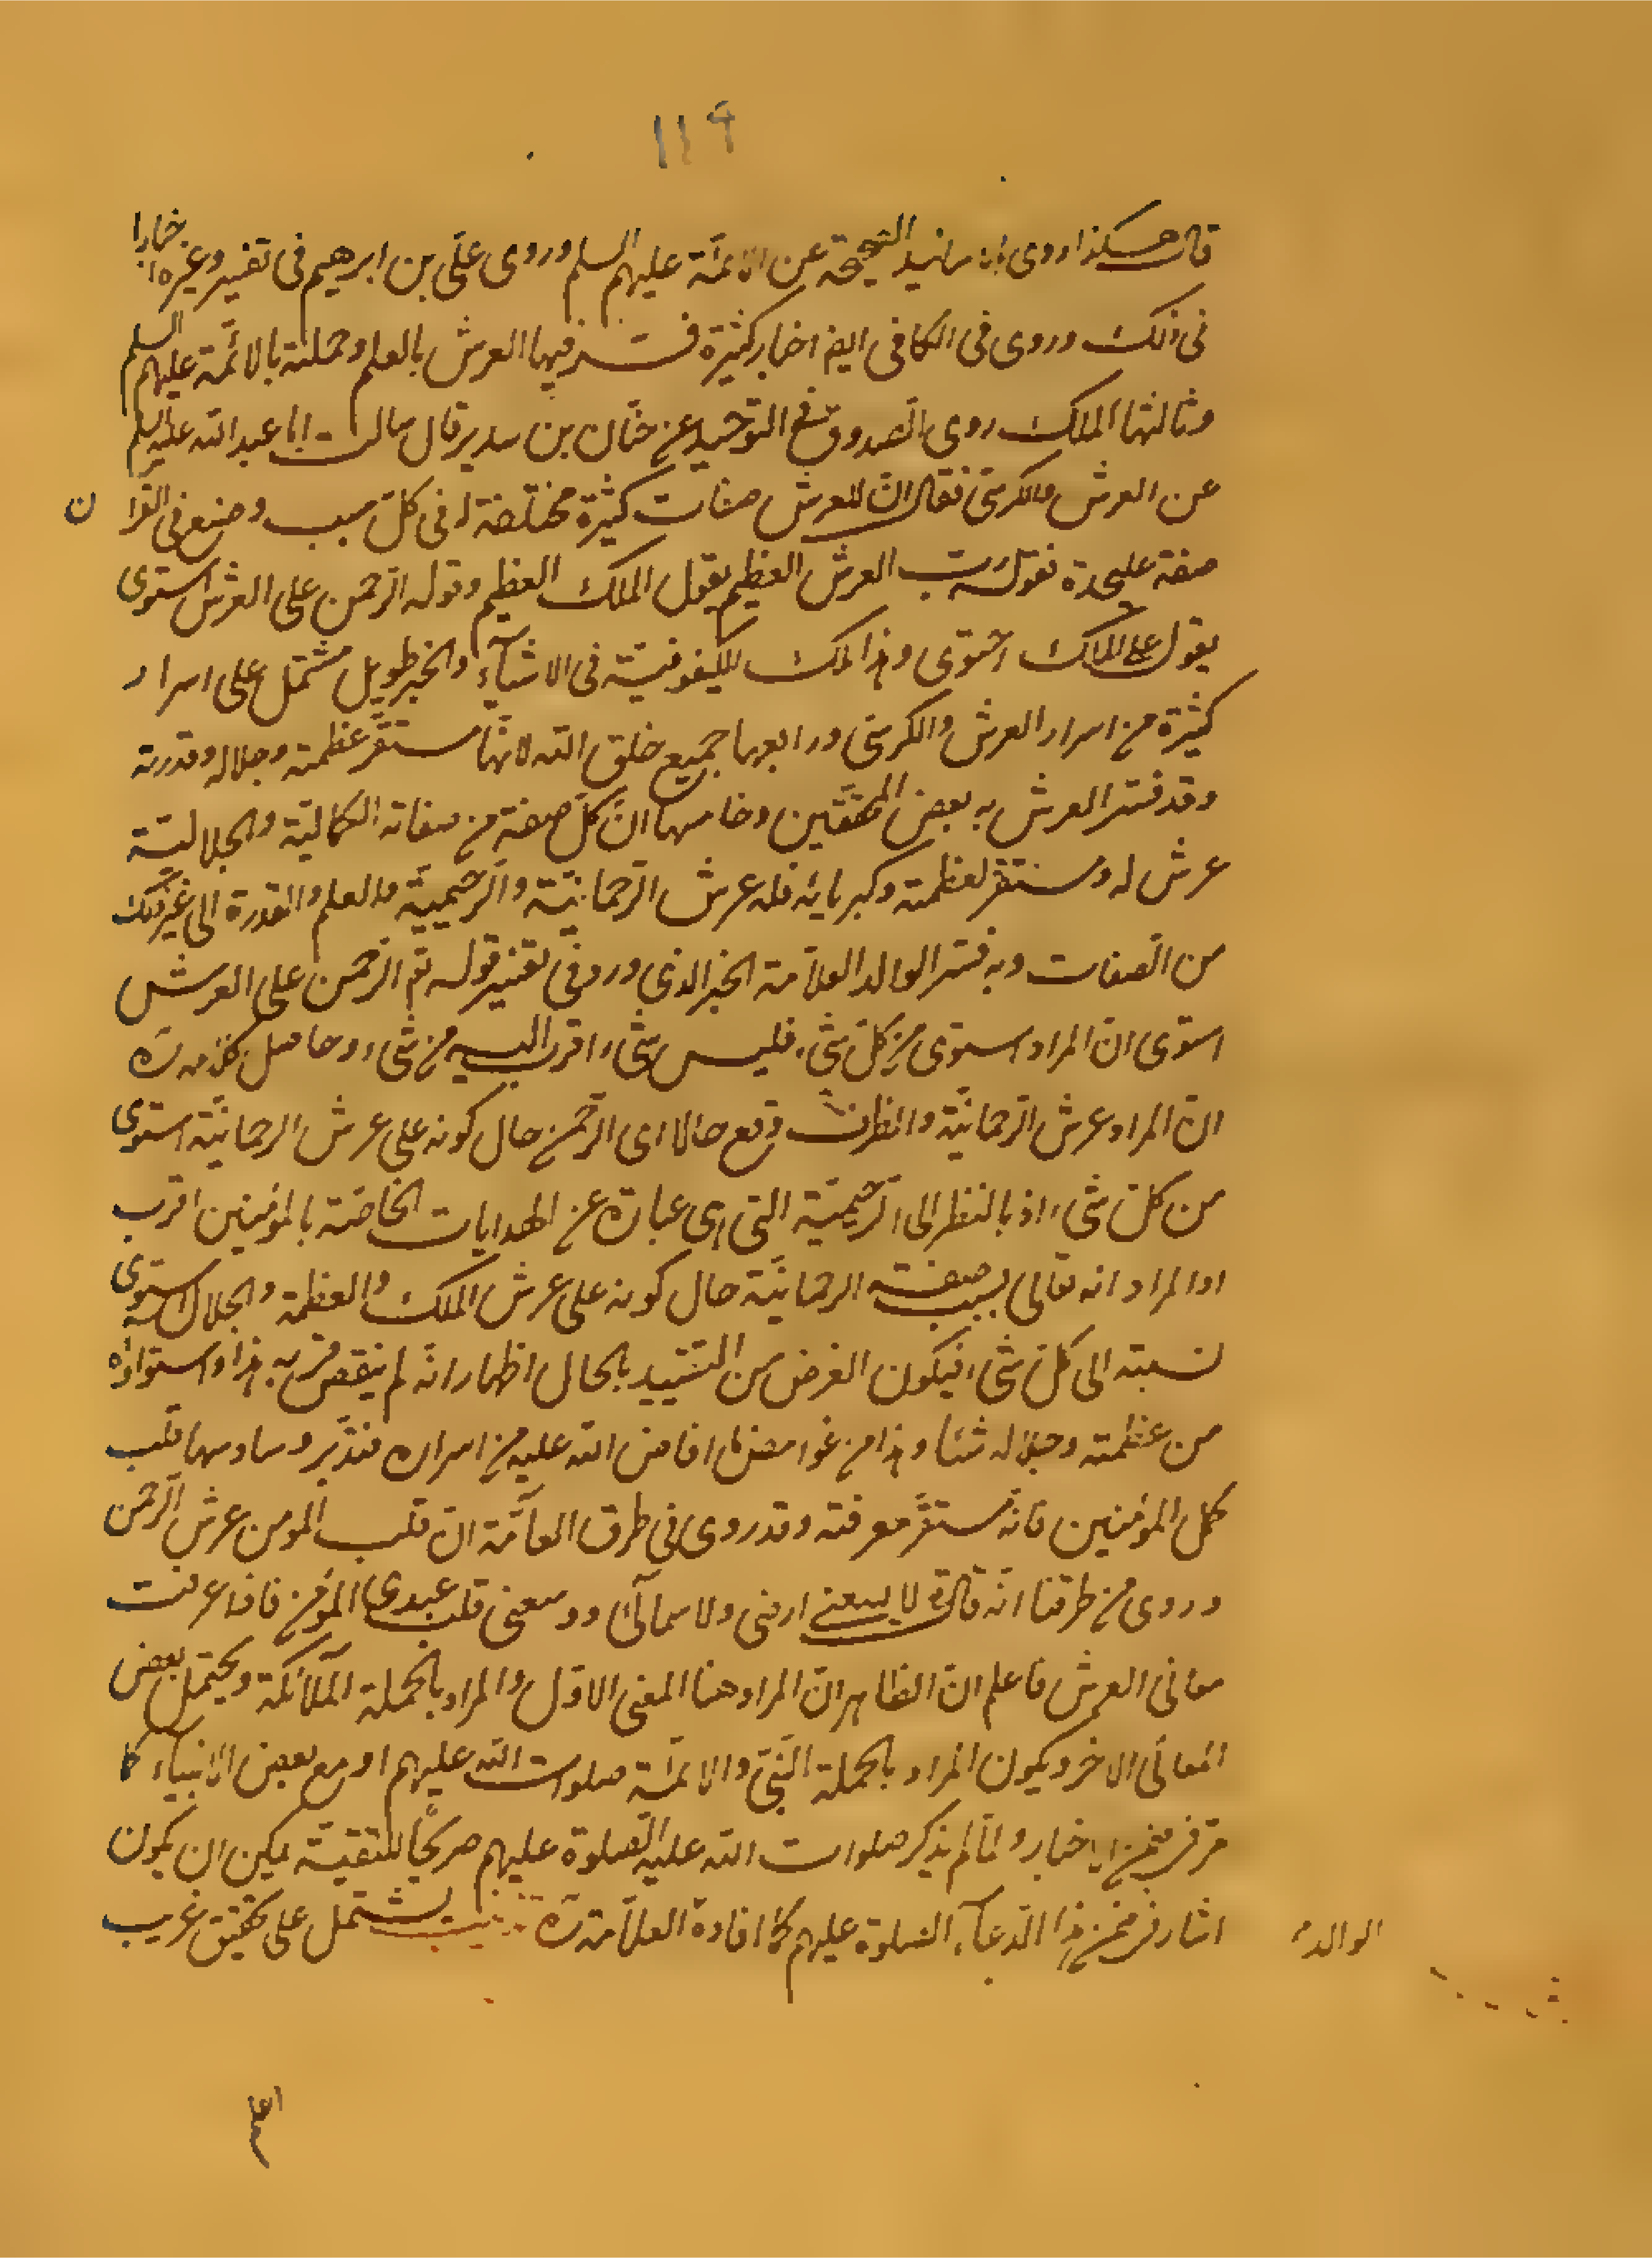 ١١٩
قال هكذا روى بالاسانيد الصحيحة عن الائمّة عليهم السلم وروى علىّ بن ابرهيم فى تفسيره وغيره اخبارا
فى ذلك وروى فى الكافى ايض اخبار كثيرة فسّر فيها العرش بالعلم وحملته بالائمّة عليهم السلم
وثالثها الملك روى الصدوق فى التوحيد عن حنّان بن سدير قال سالت ابا عبد الله عليه السلم
عن العرش والكرسىّ فقال انّ للعرش صفات كثيرة مختلفة له فى كلّ سبب وضع فى القرا ن
صفة على حدة فقوله ربّ العرش العظيم يقول الملك العظيم وقوله الرّحمن على العرش استوى
يقول على الملك احتوى وهذا ملك الكيفوفيّة فى الاشيآء والخبر طويل مشتمل على اسرار
كثيرة من اسرار العرش والكرسىّ ورابعها جميع خلق الله لانّها مستقرّ عظمته وجلاله وقدرته
وقد فسّر العرش به بعض المحققّين وخامسها انّ كلّ صفة من صفاته الكماليّة والجلاليّة
عرش له ومستقرّ لعظمته وكبريائه فله عرش الرّحمانيّة والرّحيميّة والعلم والقدرة الى غير ذلك
من الصّفات وبه فسّر الوالد العلّامة الخبر الذى ورد فى تفسير قوله تم الرّحمن على العرش
استوى انّ المراد استوى من كلّ شىء فليس شىء اقرب اليه من شىء وحاصل كلامه ره
انّ المراد عرش الرّحمانيّة والظرف وقع حالا اى الرّحمن حال كونه على عرش الرحمانيّة استوى
من كلّ شىء اذ بالنظر الى الرّحيميّة التى هى عبارة عن الهدايات الخاصّة بالمؤمنين اقرب
او المراد انه تعالى بسبب صفته الرحمانيّة حال كونه على عرش الملك والعظمة والجلال استوى
نسبته الى كلّ شىء فيكون الغرض من التقييد بالحال اظهار انّه لم ينقص قربه هذا واستواؤه
من عظمته وجلاله شيئا وهذا من غوامض ما افاض الله عليه من اسراره فتدّبر وسادسها قلب
كمل المؤمنين فانّه مستقرّ معرفته وقد روى فى طرق العامّة انّ قلب المومن عرش الرّحمن
وروى من طرقنا انّه قال تع لا يسعنى ارضى ولا سمآئى ووسعنى قلب عبدى المؤمن فاذا عرفت
معانى العرش فاعلم انّ الظاهر انّ المراد هنا المعنى الاوّل والمراد بالحملة الملآئكة ويحتمل بعض
المعانى الاخر ويكون المراد بالحملة النّبىّ والائمّة صلوات الله عليهم او مع بعض الانبيآء كا
مرّ فى ضمن الاخبار ولمّا لم يذكر صلوات الله عليه الصّلوة عليهم صريحًا للتقيّة يمكن ان يكون
اشار فى ضمن هذا الدّعآء الصّلوة عليهم كما افادة العلّامة ره تذنيب يشتمل على تحقيق غريب
الوالد
اعلم